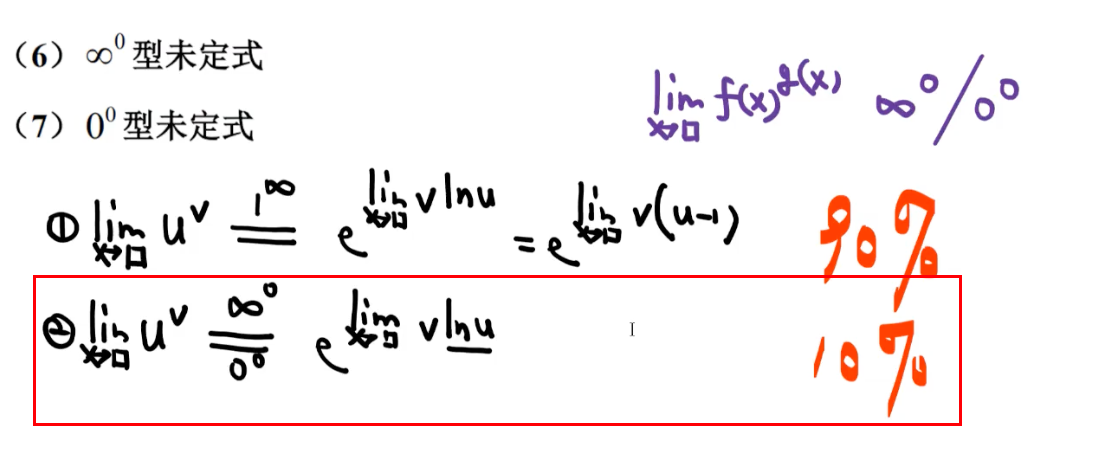 （6）∞⁰ 型未定式
lim x→□ f(x)^g(x) ∞⁰/0⁰
（7）0⁰ 型未定式
① lim x→□ u^v =(1^∞)= e^(lim x→□ v ln u) = e^(lim x→□ v(u-1)) 90%
② lim x→□ u^v =(∞⁰ / 0⁰)= e^(lim x→□ v ln u) 10%